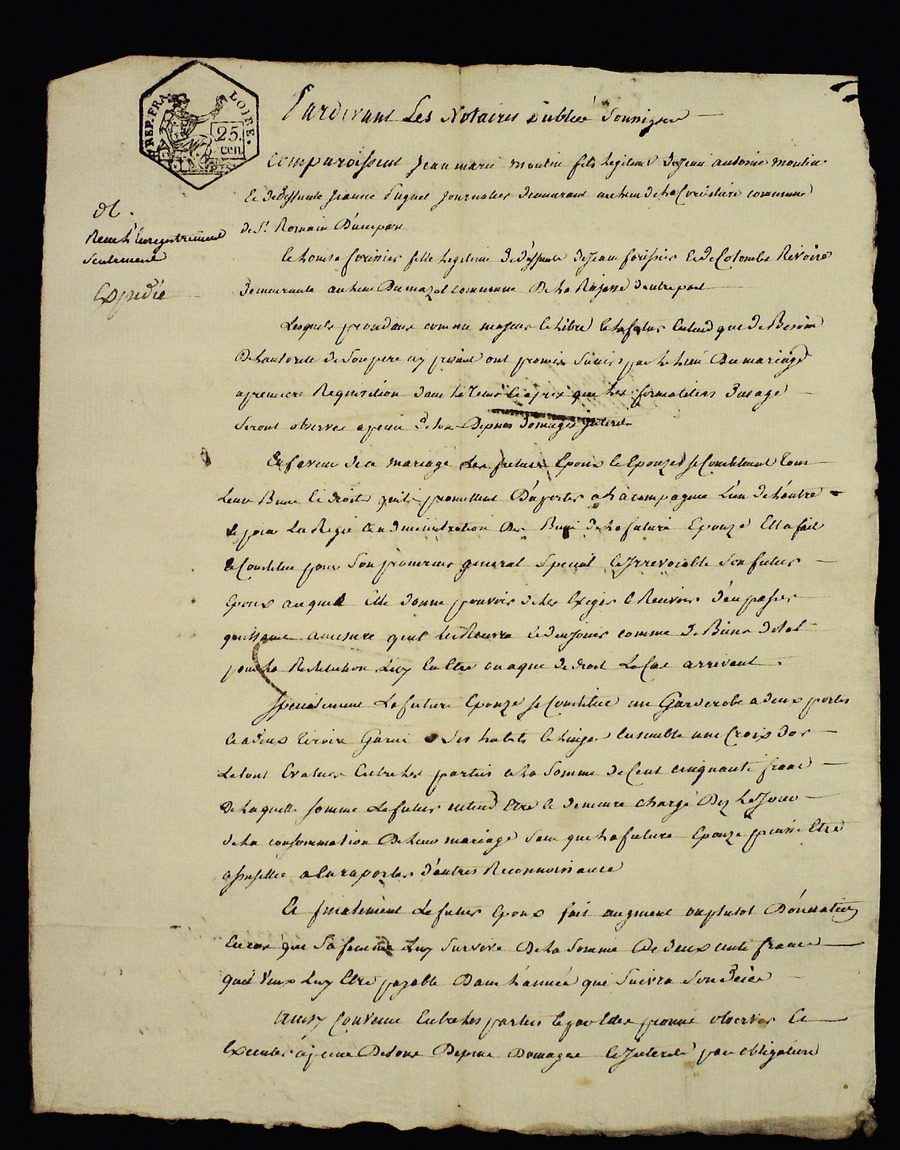 REP. FRA. LOIRE.
25.
cen
Pardevant Les Notaires Publics Soussignés
Comparoissent Jean marie moulin fils legitime de Jean antoine moulin
Et de deffunte Jeanne Journalier demeurant au lieu de la commune
de St Romain D'une part
Et Louise forissier fille legitime de deffunts de Jean forissier Et de Colombe Revoire
demeurante au lieu Du mazel commune De La Rajasse d'autre part
Lesquels procedans comme majeurs et libre Et la future En tant que de Besoin
De l'autorité de Son pere icy présent ont promis S'unir par le lien Du mariage
a premiere Requisition dans le tems Et apres que Les formalités d'usage
Seront observées a peine de tous Depens domages Interets
En faveur de ce mariage Les futurs Epoux Et Epouze Se Constituent tous
Leurs Biens Et droits qu'ils promettent D'aporter a la compagnie L'un de L'autre
Et pour La Regie Et administration des Biens de La future Epouze Elle a fait
Et Constitué pour Son procureur general Special Et Irrevocable Son futur
Epoux auquel Elle donne pouvoir de Les Exiger Et Recevoir d'en passer
quittance a mesure qu'il les Recevra Et d'en Jouir comme de Biens dotal
pour La Restitution Luy En Etre ce que de droit Le Cas arrivant.
Specialement La future Epouze Se Constitue un Garderobe a deux portes
Et a deux tiroirs Garni des habits Et linges Ensemble une Croix d'or
Le tout Evalué Entre Les parties a La Somme de Cent cinquante francs
De Laquelle Somme Le futur entend Etre Et demeure chargé Dez Le Jour
de La consommation De leur mariage Sans que La future Epouze puisse Etre
a En raporter d'autres Reconnoissance
Et finalement Le futur Epoux fait augment ou plutot Donnation
En cas que Sa femme Luy Survive De La Somme De deux cents francs
qu'il veut Luy Etre payable Dans L'année qui Suivra Son Deces
Ainsy Convenu Entre Les parties Et promis observer Et
Executer a peine De tous Depens Domages Et Interets par obligations
dt.
Reçu L'Enregistrement
Seulement
Expedié